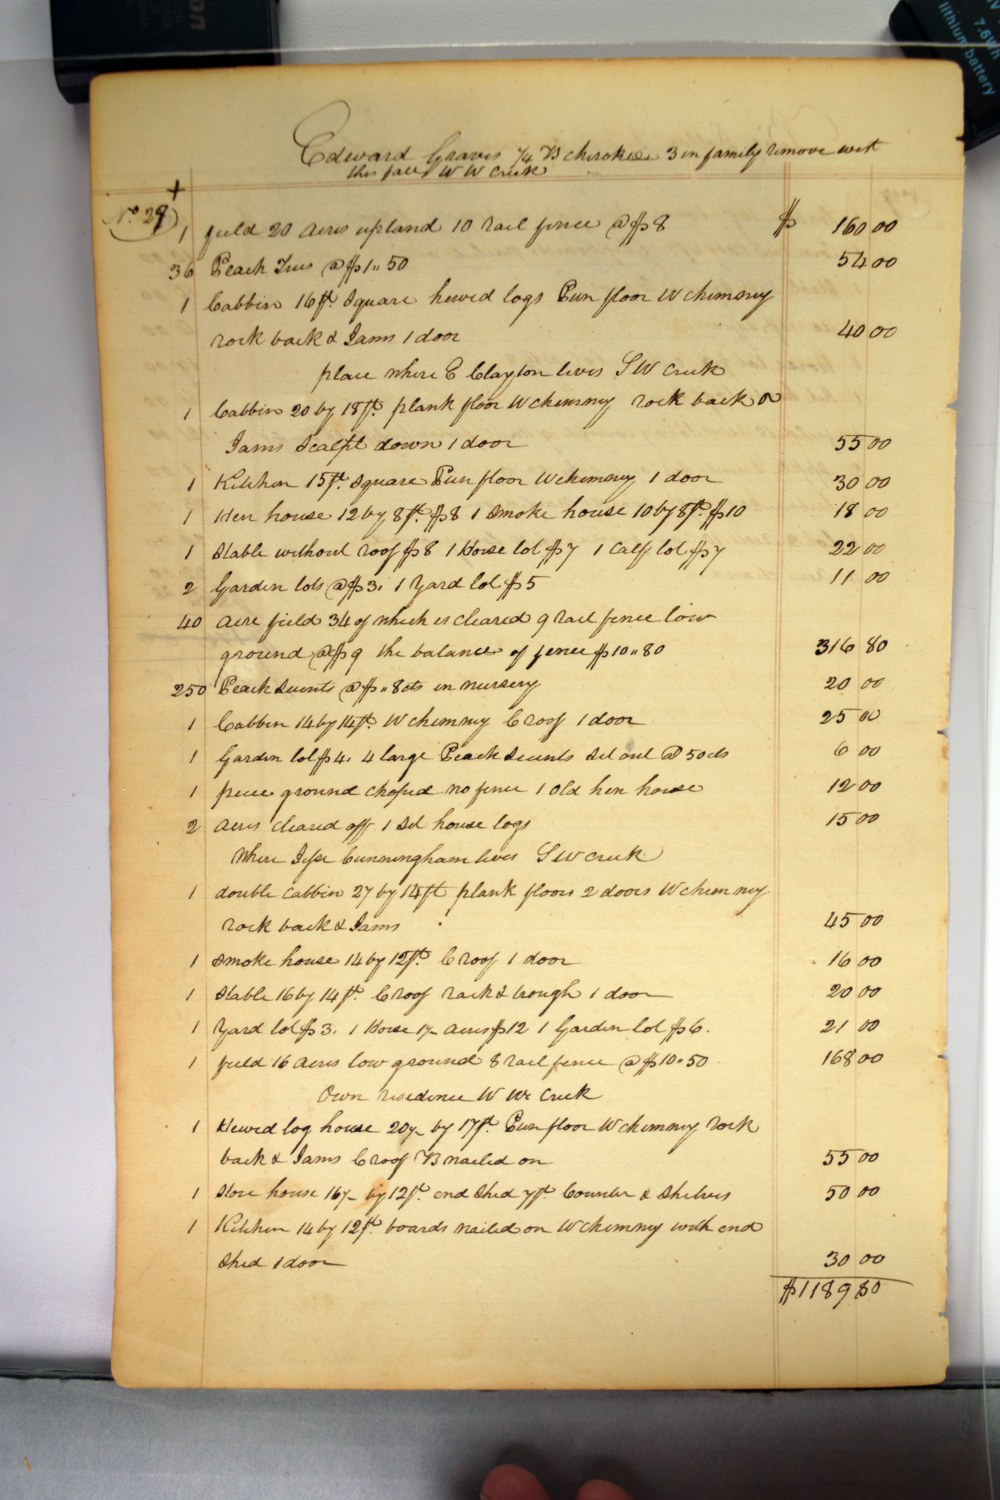 on
7.6Wh
lithium battery
Edward Graves ¾ B cherokee 3 in family remove west
this fall W W Creek
+
No. 29
1 field 20 acres upland 10 rail fence @ $8 $ 160 00
36 Peach Trees @ $1 " 50 54 00
1 Cabbin 16ft. Square hewed logs Pun floor W chimney
rock back & Jams 1 door 40 00
place where E Clayton lives S W creek
1 Cabbin 20 by 18ft. plank floor W chimney rock back &
Jams Scalpt down 1 door 55 00
1 Kitchen 15ft. Square Pun floor W chimney 1 door 30 00
1 Hen house 12 by 8ft. $8 1 Smoke house 10 by 8ft. $10 18 00
1 Stable without roof $8 1 Horse lot $7 1 Calf lot $7 22 00
2 Garden lots @ $3. 1 Yard lot $5 11 00
40 acre field 34 of which is cleared 9 rail fence low
ground @ $9 the balance of fence $10 " 80 316 80
250 Peach Scients @ $ " 8cts in nursery 20 00
1 Cabbin 14 by 14ft. W chimney C roof 1 door 25 00
1 Garden lot $4. 4 large Peach Scients Set out @ 50cts 6 00
1 piece ground choped no fence 1 Old hen house 12 00
2 acres cleared off 1 Set house logs 15 00
Where Jesse Cunningham lives S W creek
1 double Cabbin 27 by 14ft plank floors 2 doors W chimney
rock back & Jams 45 00
1 Smoke house 14 by 12ft. C roof 1 door 16 00
1 Stable 16 by 14ft. C roof rack & trough 1 door 20 00
1 Yard lot $3. 1 Horse acres $12 1 Garden lot $6. 21 00
1 field 16 acres low ground 8 rail fence @ $10 " 50 168 00
Own residence W W Creek
1 Hewed log house by 17ft. Pun floor W chimney rock
back & Jams C roof B nailed on 55 00
1 Store house by 12ft. end Shed 7ft Counter & Shelves 50 00
1 Kitchen 14 by 12ft. boards nailed on W chimney with end
Shed 1 door 30 00
$1189 80